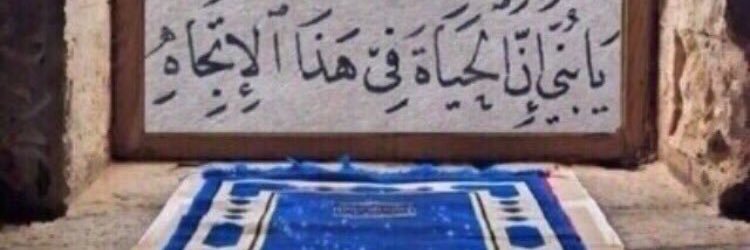 يَا بُنَيَّ إِنَّ الْحَيَاةَ فِيْ هَذَا ٱلْإِتِّجَاهِ